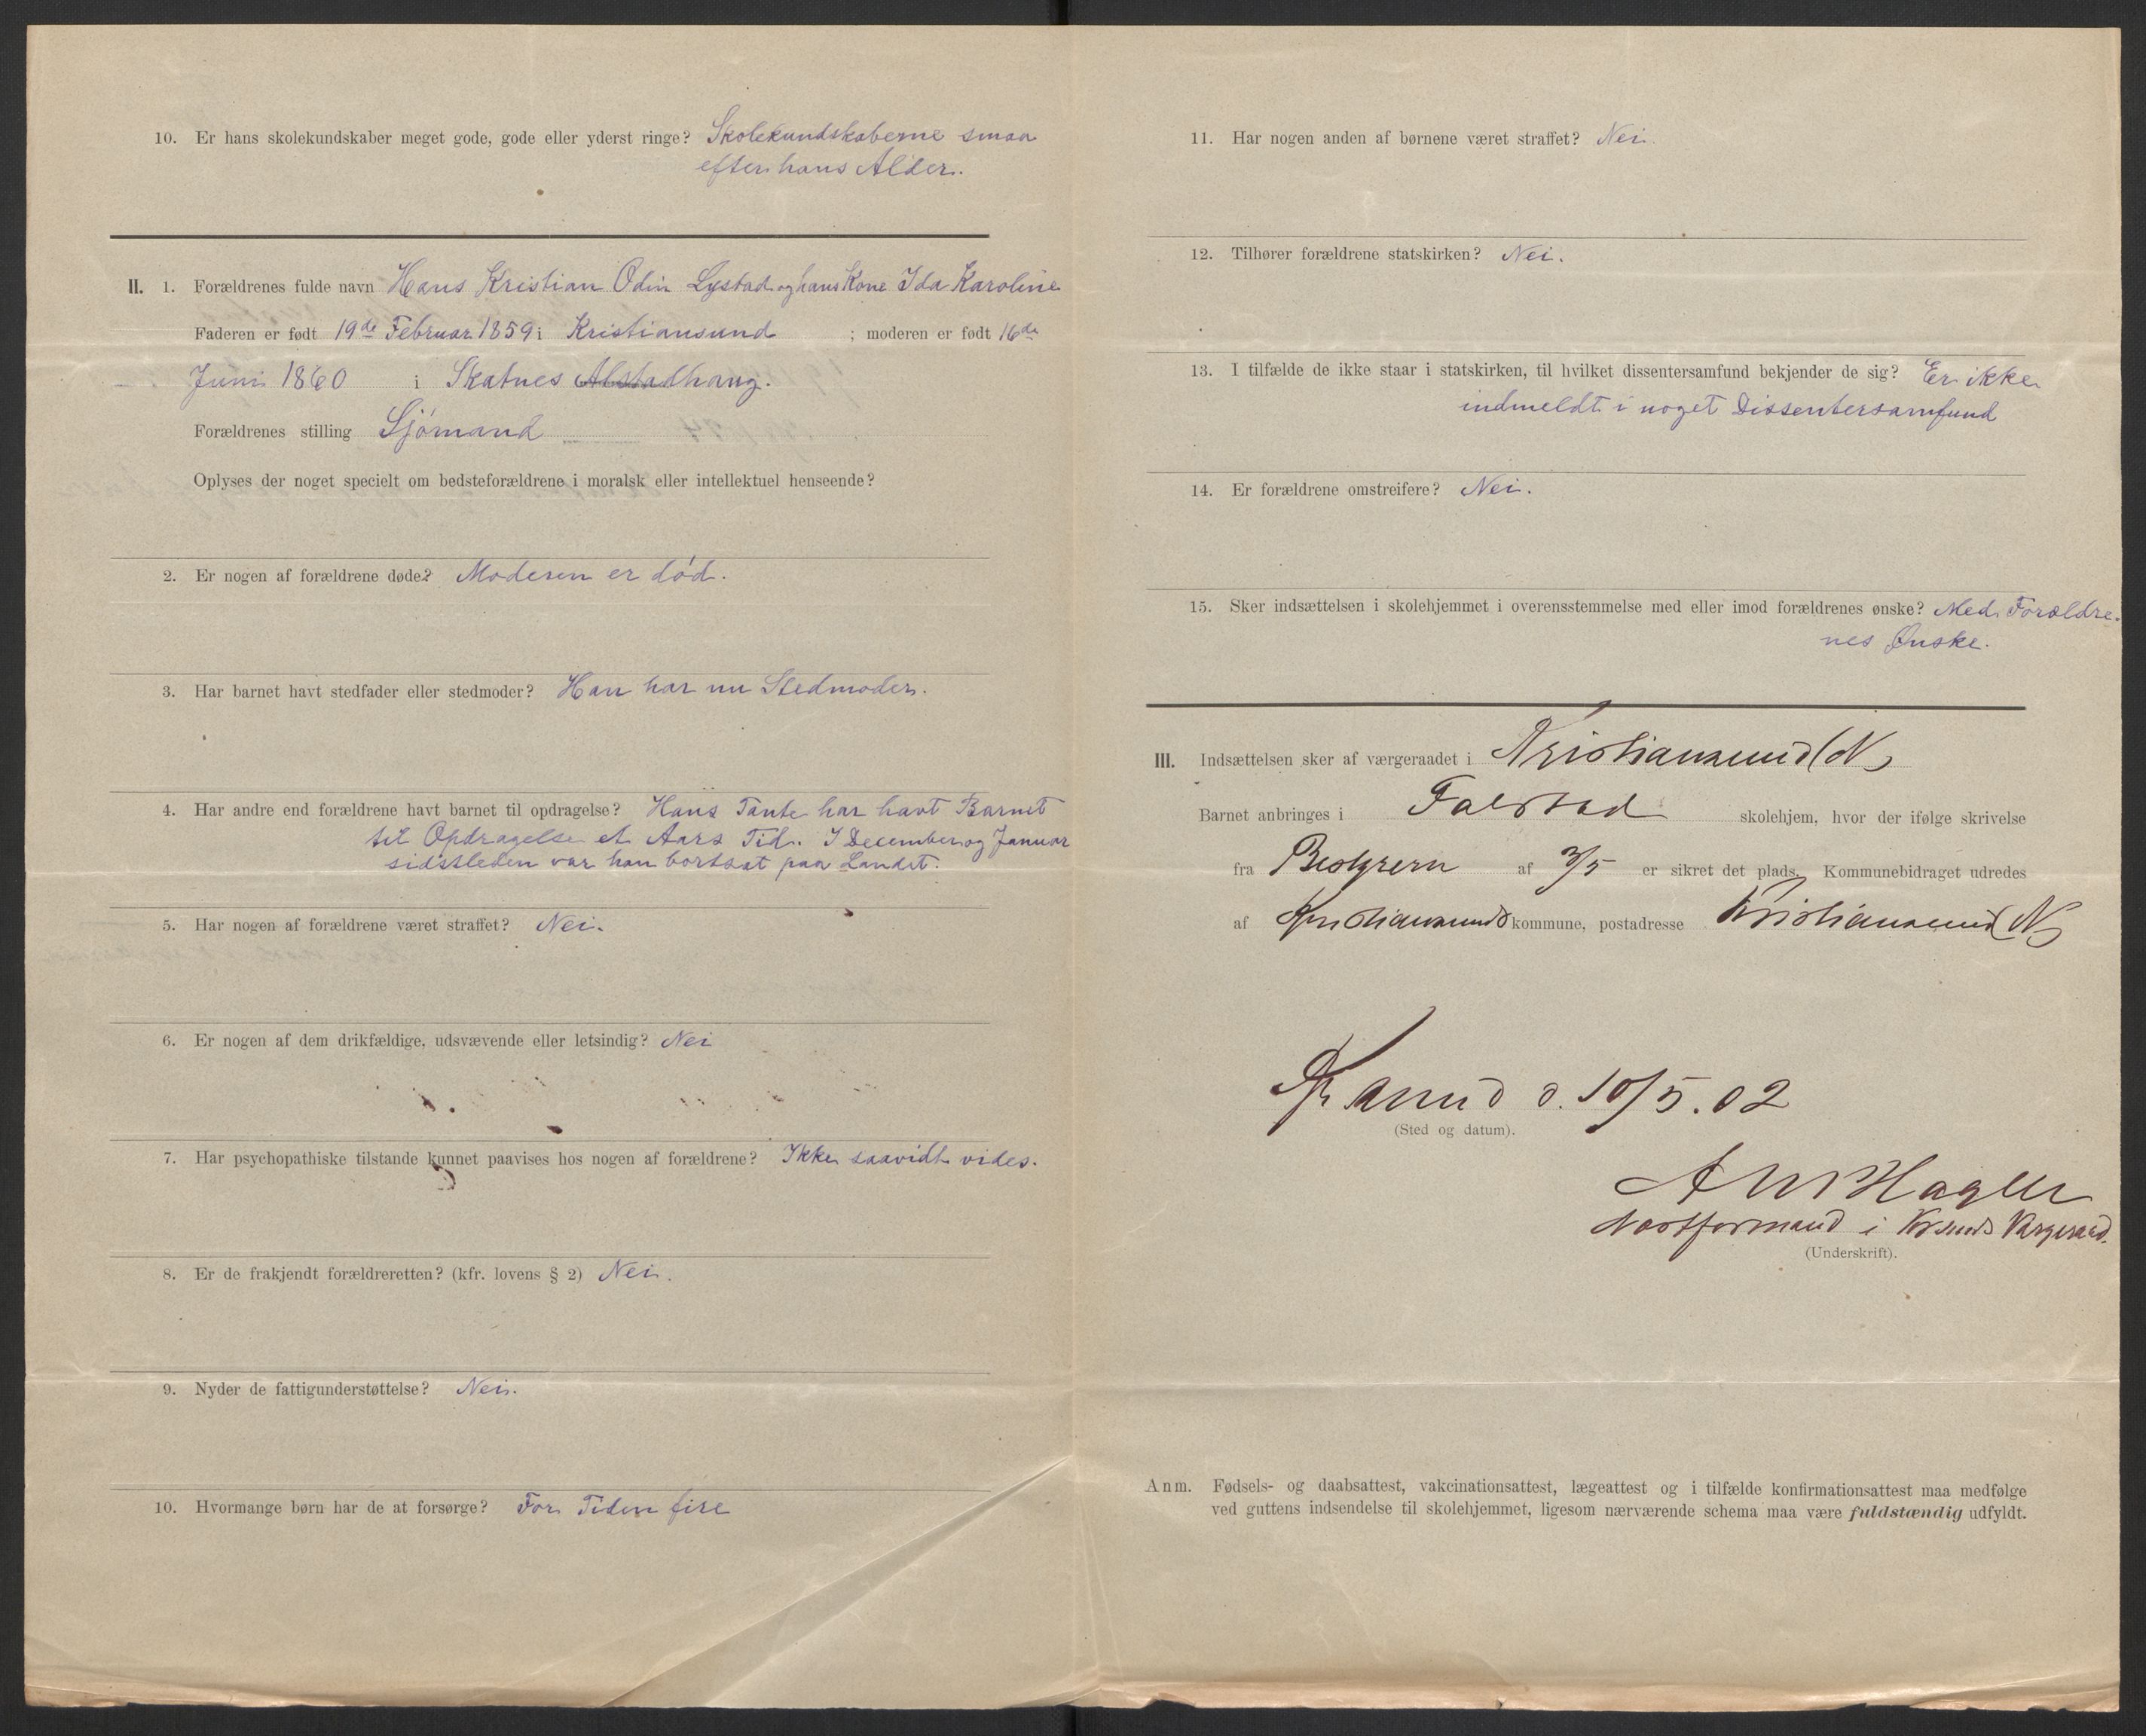 10. Er hans skolekundskaber meget gode, gode eller yderst ringe? Skolekundskaberne smaa
efter hans Alder.
II. 1. Forældrenes fulde navn Hans Kristian Odin Lystad og hans Kone Ida Karoline
Faderen er født 19de Februar 1859 i Kristiansund ; moderen er født 16de
Juni 1860 i Skatnes Alstadhaug.
Forældrenes stilling Sjømand
Oplyses der noget specielt om bedsteforældrene i moralsk eller intellektuel henseende?
2. Er nogen af forældrene døde? Moderen er død.
3. Har barnet havt stedfader eller stedmoder? Han har nu Stedmoder.
4. Har andre end forældrene havt barnet til opdragelse? Hans Tante har havt Barnet
til Opdragelse et Aars Tid. I December og Januar
sidstleden var han bortsat paa Landet.
5. Har nogen af forældrene været straffet? Nei.
6. Er nogen af dem drikfældige, udsvævende eller letsindig? Nei
7. Har psychopathiske tilstande kunnet paavises hos nogen af forældrene? Ikke saavidt vides.
8. Er de frakjendt forældreretten? (kfr. lovens § 2) Nei.
9. Nyder de fattigunderstøttelse? Nei.
10. Hvormange børn har de at forsørge? For Tiden fire
11. Har nogen anden af børnene været straffet? Nei.
12. Tilhører forældrene statskirken? Nei.
13. I tilfælde de ikke staar i statskirken, til hvilket dissentersamfund bekjender de sig? Er ikke
indmeldt i noget Dissentersamfund
14. Er forældrene omstreifere? Nei.
15. Sker indsættelsen i skolehjemmet i overensstemmelse med eller imod forældrenes ønske? Med Forældre-
nes Ønske.
III. Indsættelsen sker af værgeraadet i Kristianssund (N)
Barnet anbringes i Falstad skolehjem, hvor der ifølge skrivelse
fra Bestyrern af 3/5 er sikret det plads. Kommunebidraget udredes
af Kristianssunds kommune, postadresse Kristianssund (N)
Kr.sund d. 10/5.02
(Sted og datum).
Hagen
i Kr.sunds Værgeraad.
(Underskrift).
Anm. Fødsels- og daabsattest, vakcinationsattest, lægeattest og i tilfælde konfirmationsattest maa medfølge
ved guttens indsendelse til skolehjemmet, ligesom nærværende schema maa være fuldstændig udfyldt.